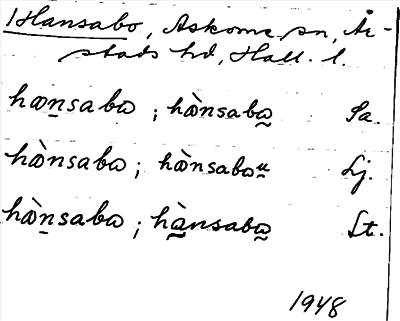 Hansabo, Askome sn, År-
stads hd, Hall. l.
hænsabɷ ; hæ̀nsabɷ̰ Sa.
hæ̀nsabɷ ; hæ̀nsabɷᵘ̰ Lj.
hæ̀n̠sabɷ ; hà̰nsabɷ̰ St.
1948